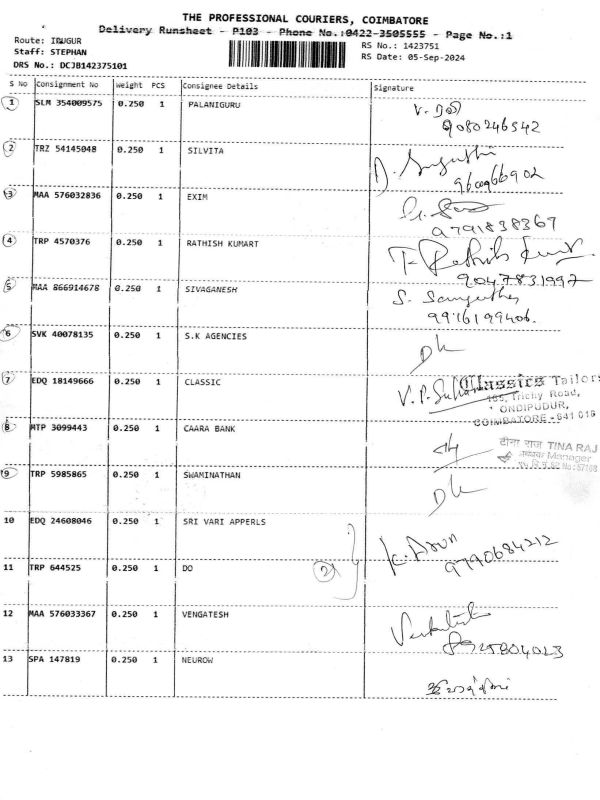 THE PROFESSIONAL COURIERS, COIMBATORE
Delivery Runsheet - P103 - Phone No.:0422-3505555 - Page No.:1
Route: IRUGUR
RS No.: 1423751
Staff: STEPHAN
RS Date: 05-Sep-2024
DRS No.: DCJB142375101
S No Consignment No Weight PCS Consignee Details Signature
1 SLM 354009575 0.250 1 PALANIGURU
9080246542
2 TRZ 54145048 0.250 1 SILVITA
9600966902
3 MAA 576032836 0.250 1 EXIM
9791838367
4 TRP 4570376 0.250 1 RATHISH KUMART T. Rathish Kumar
9047831997
5 MAA 866914678 0.250 1 SIVAGANESH
9916199406.
6 SVK 40078135 0.250 1 S.K AGENCIES
7 EDQ 18149666 0.250 1 CLASSIC
Classics Tailors
165, Trichy Road,
ONDIPUDUR,
COIMBATORE - 641 016
8 MTP 3099443 0.250 1 CAARA BANK
टीना राज TINA RAJ
Manager
9 TRP 5985865 0.250 1 SWAMINATHAN
10 EDQ 24608046 0.250 1 SRI VARI APPERLS K. Arun
9790684212
11 TRP 644525 0.250 1 DO
12 MAA 576033367 0.250 1 VENGATESH
13 SPA 147819 0.250 1 NEUROW